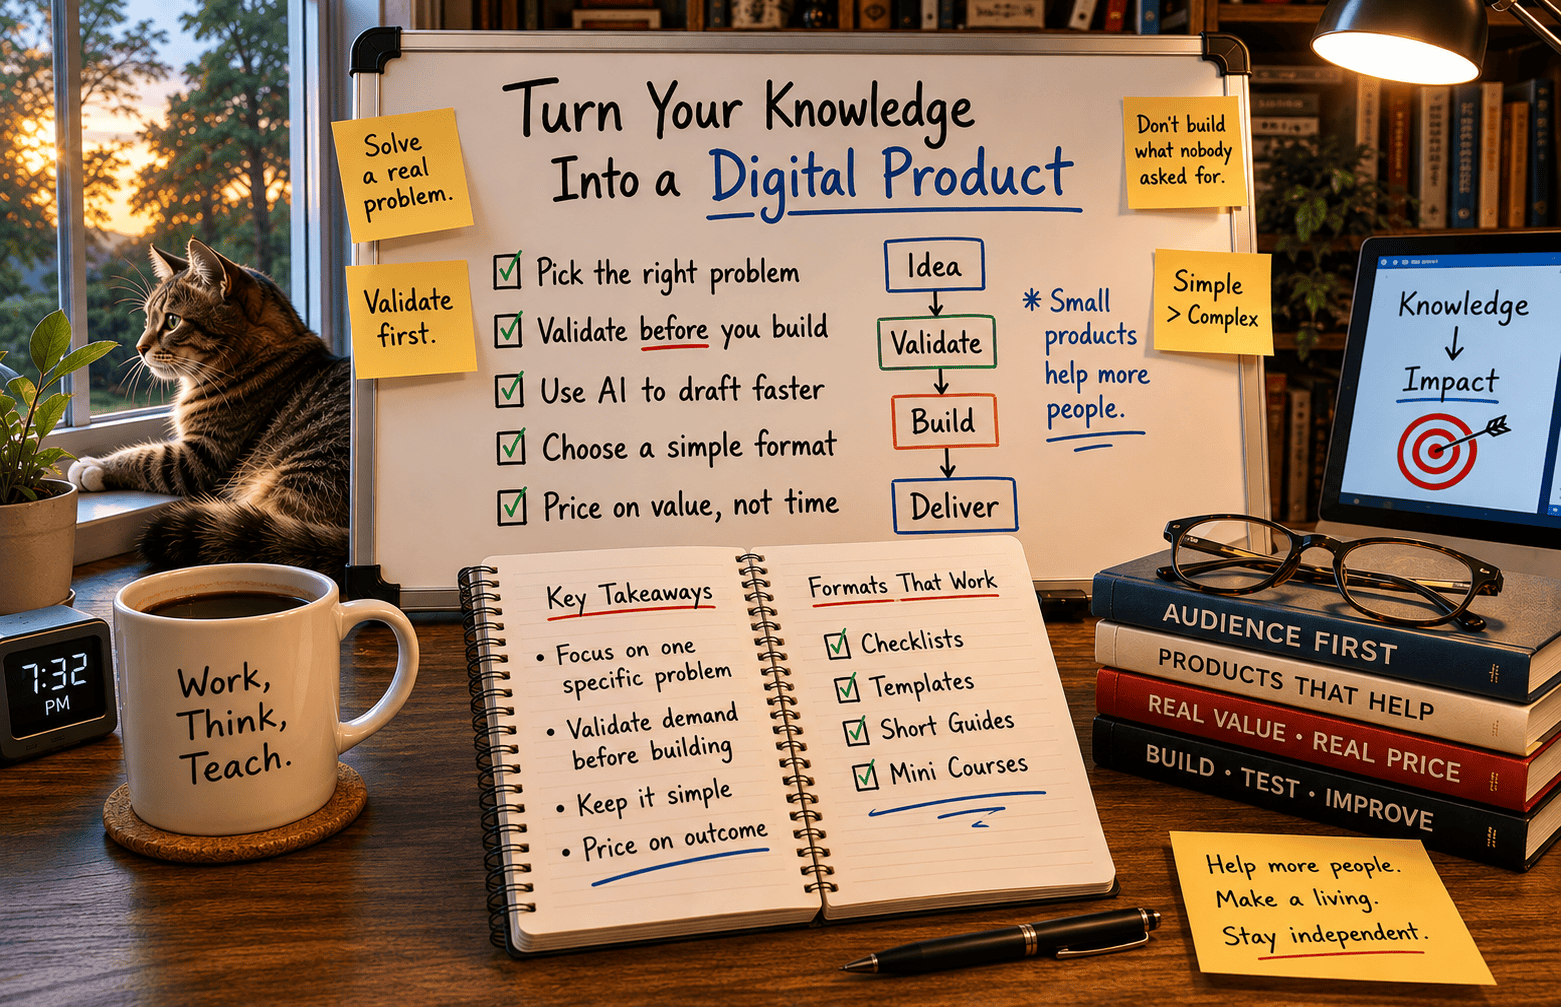 Turn Your Knowledge
Into a Digital Product
Solve
a real
problem.
Validate
first.
Don't build
what nobody
asked for.
Simple
> Complex
Pick the right problem
Validate before you build
Use AI to draft faster
Choose a simple format
Price on value, not time
Idea
Validate
Build
Deliver
* Small
products
help more
people.
Knowledge
Impact
Key Takeaways
• Focus on one
specific problem
• Validate demand
before building
• Keep it simple
• Price on outcome
Formats That Work
Checklists
Templates
Short Guides
Mini Courses
7:32
PM
Work,
Think,
Teach.
AUDIENCE FIRST
PRODUCTS THAT HELP
REAL VALUE • REAL PRICE
BUILD • TEST • IMPROVE
Help more people.
Make a living.
Stay independent.